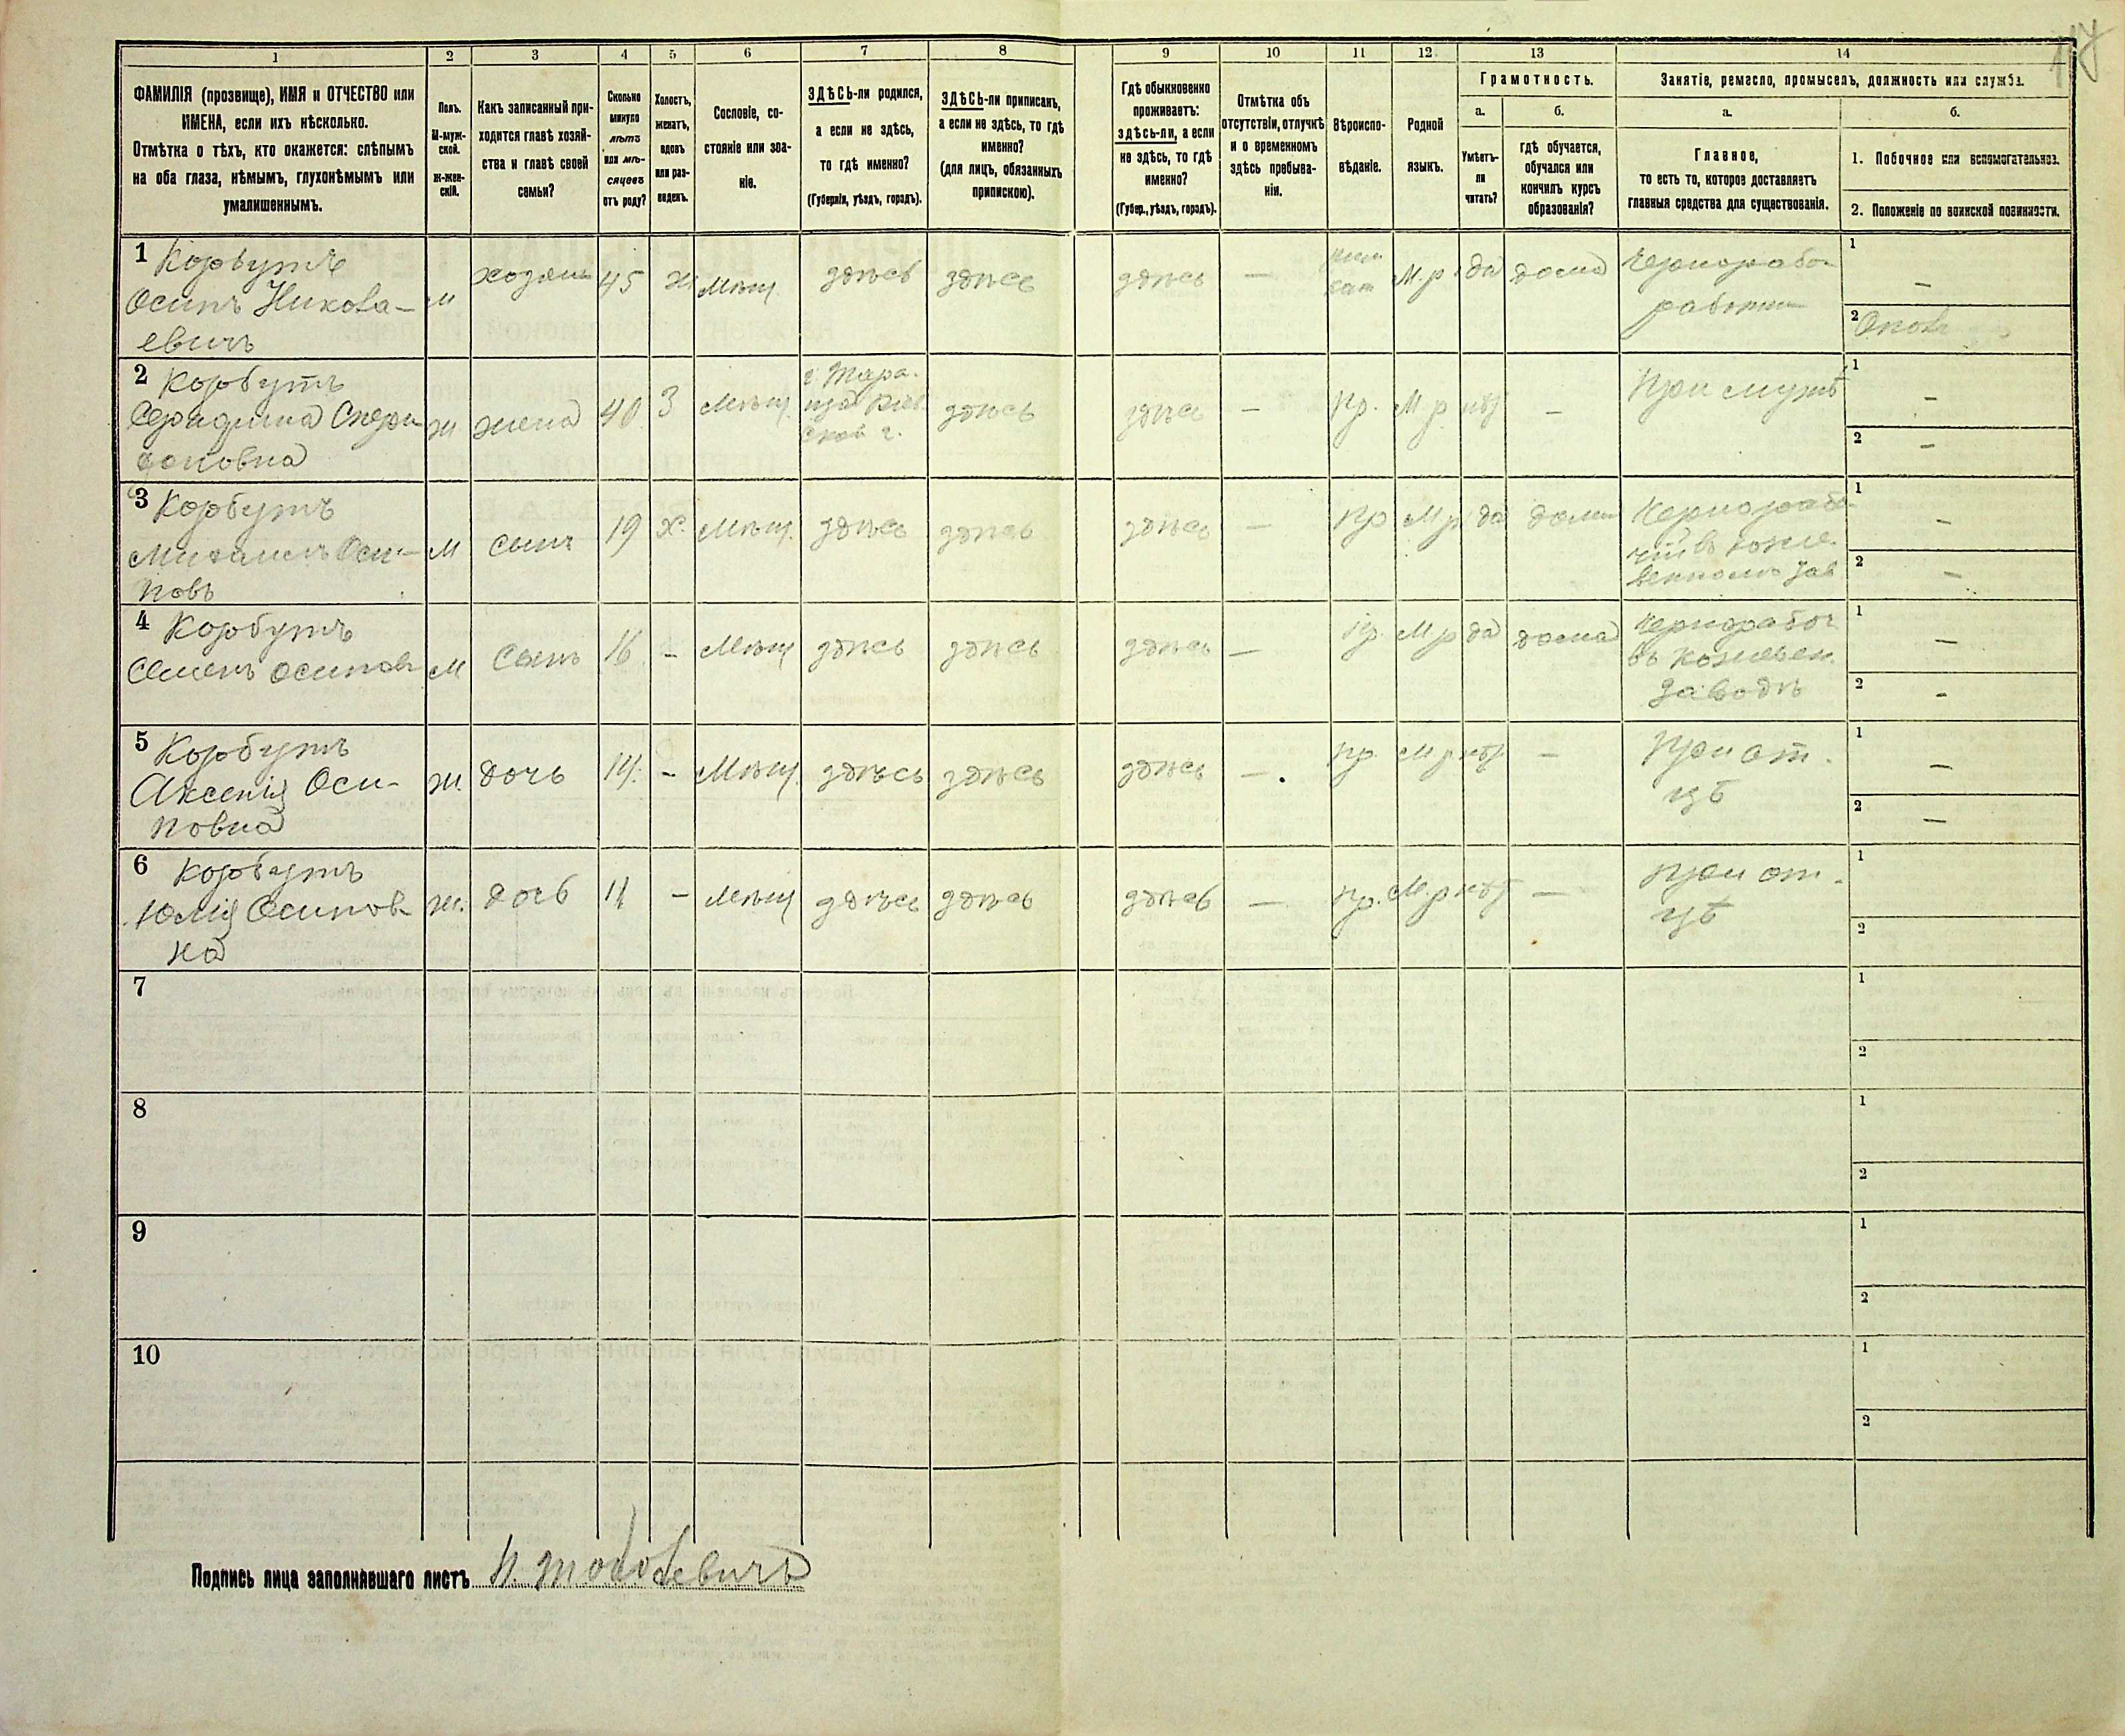 1 2 3 4 5 6 7 8 9 10 11 12 13 14
ФАМИЛІЯ (прозвище), ИМЯ и ОТЧЕСТВО или
ИМЕНА, если ихъ нѣсколько.
Отмѣтка о тѣхъ, кто окажется: слѣпымъ
на оба глаза, нѣмымъ, глухонѣмымъ или
умалишеннымъ.
Полъ.
М-муж-
ской.
ж-жен-
скій.
Какъ записанный при-
ходится главѣ хозяй-
ства и главѣ своей
семьи?
Сколько
минуло
лѣтъ
или мѣ-
сяцевъ
отъ роду?
Холостъ,
женатъ,
вдовъ
или раз-
веденъ.
Сословіе, со-
стояніе или зва-
ніе.
ЗДѢСЬ-ли родился,
а если не здѣсь,
то гдѣ именно?
(Губернія, уѣздъ, городъ).
ЗДѢСЬ-ли приписанъ,
а если не здѣсь, то гдѣ
именно?
(для лицъ, обязанныхъ
припискою).
Гдѣ обыкновенно
проживаетъ:
здѣсь-ли, а если
не здѣсь, то гдѣ
именно?
(Губер., уѣздъ, городъ).
Отмѣтка объ
отсутствіи, отлучкѣ
и о временномъ
здѣсь пребыва-
ніи.
Вѣроиспо-
вѣданіе.
Родной
языкъ.
Грамотность.
а. б.
Умѣетъ-
ли
читать?
гдѣ обучается,
обучался или
кончилъ курсъ
образованія?
Занятіе, ремесло, промыселъ, должность или служба.
а. б.
Главное,
то есть то, которое доставляетъ
главныя средства для существованія.
1. Побочное или вспомогательное.
2. Положеніе по воинской повинности.
1 Корбутъ
Осипъ Никола-
евичъ
м хозяинъ 45 ж Мѣщ. здѣсь здѣсь здѣсь — М.р. да дома
1 —
2
2 Корбутъ
Серафима Спири
доновна
ж жена 40 З Мѣщ. г. Тара-
ща Кіев
ской г.
здѣсь здѣсь — Пр. М р нѣт — При мужѣ
1 —
2 —
3 Корбутъ
Михаилъ Оси-
повъ
м сынъ 19 х. Мѣщ. здѣсь здѣсь здѣсь — Пр М р да дома Чернорабо-
чій въ коже-
венномъ зав
1 —
2 —
4 Корбутъ
Семенъ Осипов
м Сынъ 16 - Мѣщ здѣсь здѣсь здѣсь — Пр. М р да дома Чернорабоч
въ кожевен.
заводѣ
1 —
2 -
5 Корбутъ
Аксенія Оси-
повна
ж. дочь 14. - Мѣщ. здѣсь здѣсь здѣсь —. Пр. М р нѣт — При от-
цѣ
1 —
2 —
6 Корбутъ
Юлія Осипов-
на
ж. дочь 11 - Мѣщ здѣсь здѣсь здѣсь — Пр. М.р нѣт — При от-
цѣ
1
2
7
1
2
8
1
2
9
1
2
10
1
2
Подпись лица заполнявшаго листъ